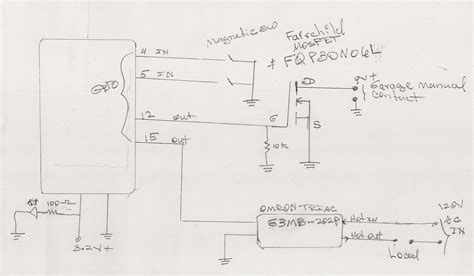 4 IN
Magnetic sw
Fairchild
MOSFET
# FQP30N06L
5 IN
GPIO
12 out
G
D
9V+
Garage Manual
Contact
S
15 out
10K
100-Ω
3.2V+
OMRON-TRIAC
G3MB-202P
Hot IN
Hot out
Load
120V
AC
IN